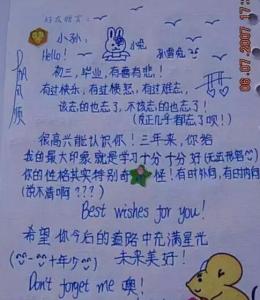 好友赠言:
小孙:
Hello! 小兔
孙雪兔
一帆风顺
初三,毕业,有喜有悲!
有过快乐,有过愤怒,有过难忘,
该忘的也忘了,不该忘的也忘了!
(反正几乎都忘了呗!)
很高兴能认识你!三年来,你给
我的最大印象就是学习十分十分好(无法形容)
你的性格其实特别奇怪!有时外向,有时内向
(说不清啊???)
Best wishes for you!
希望你今后的道路中充满星光
(十年少) 未来美好!
Don't forget me 噢!
06.07.2007 17: